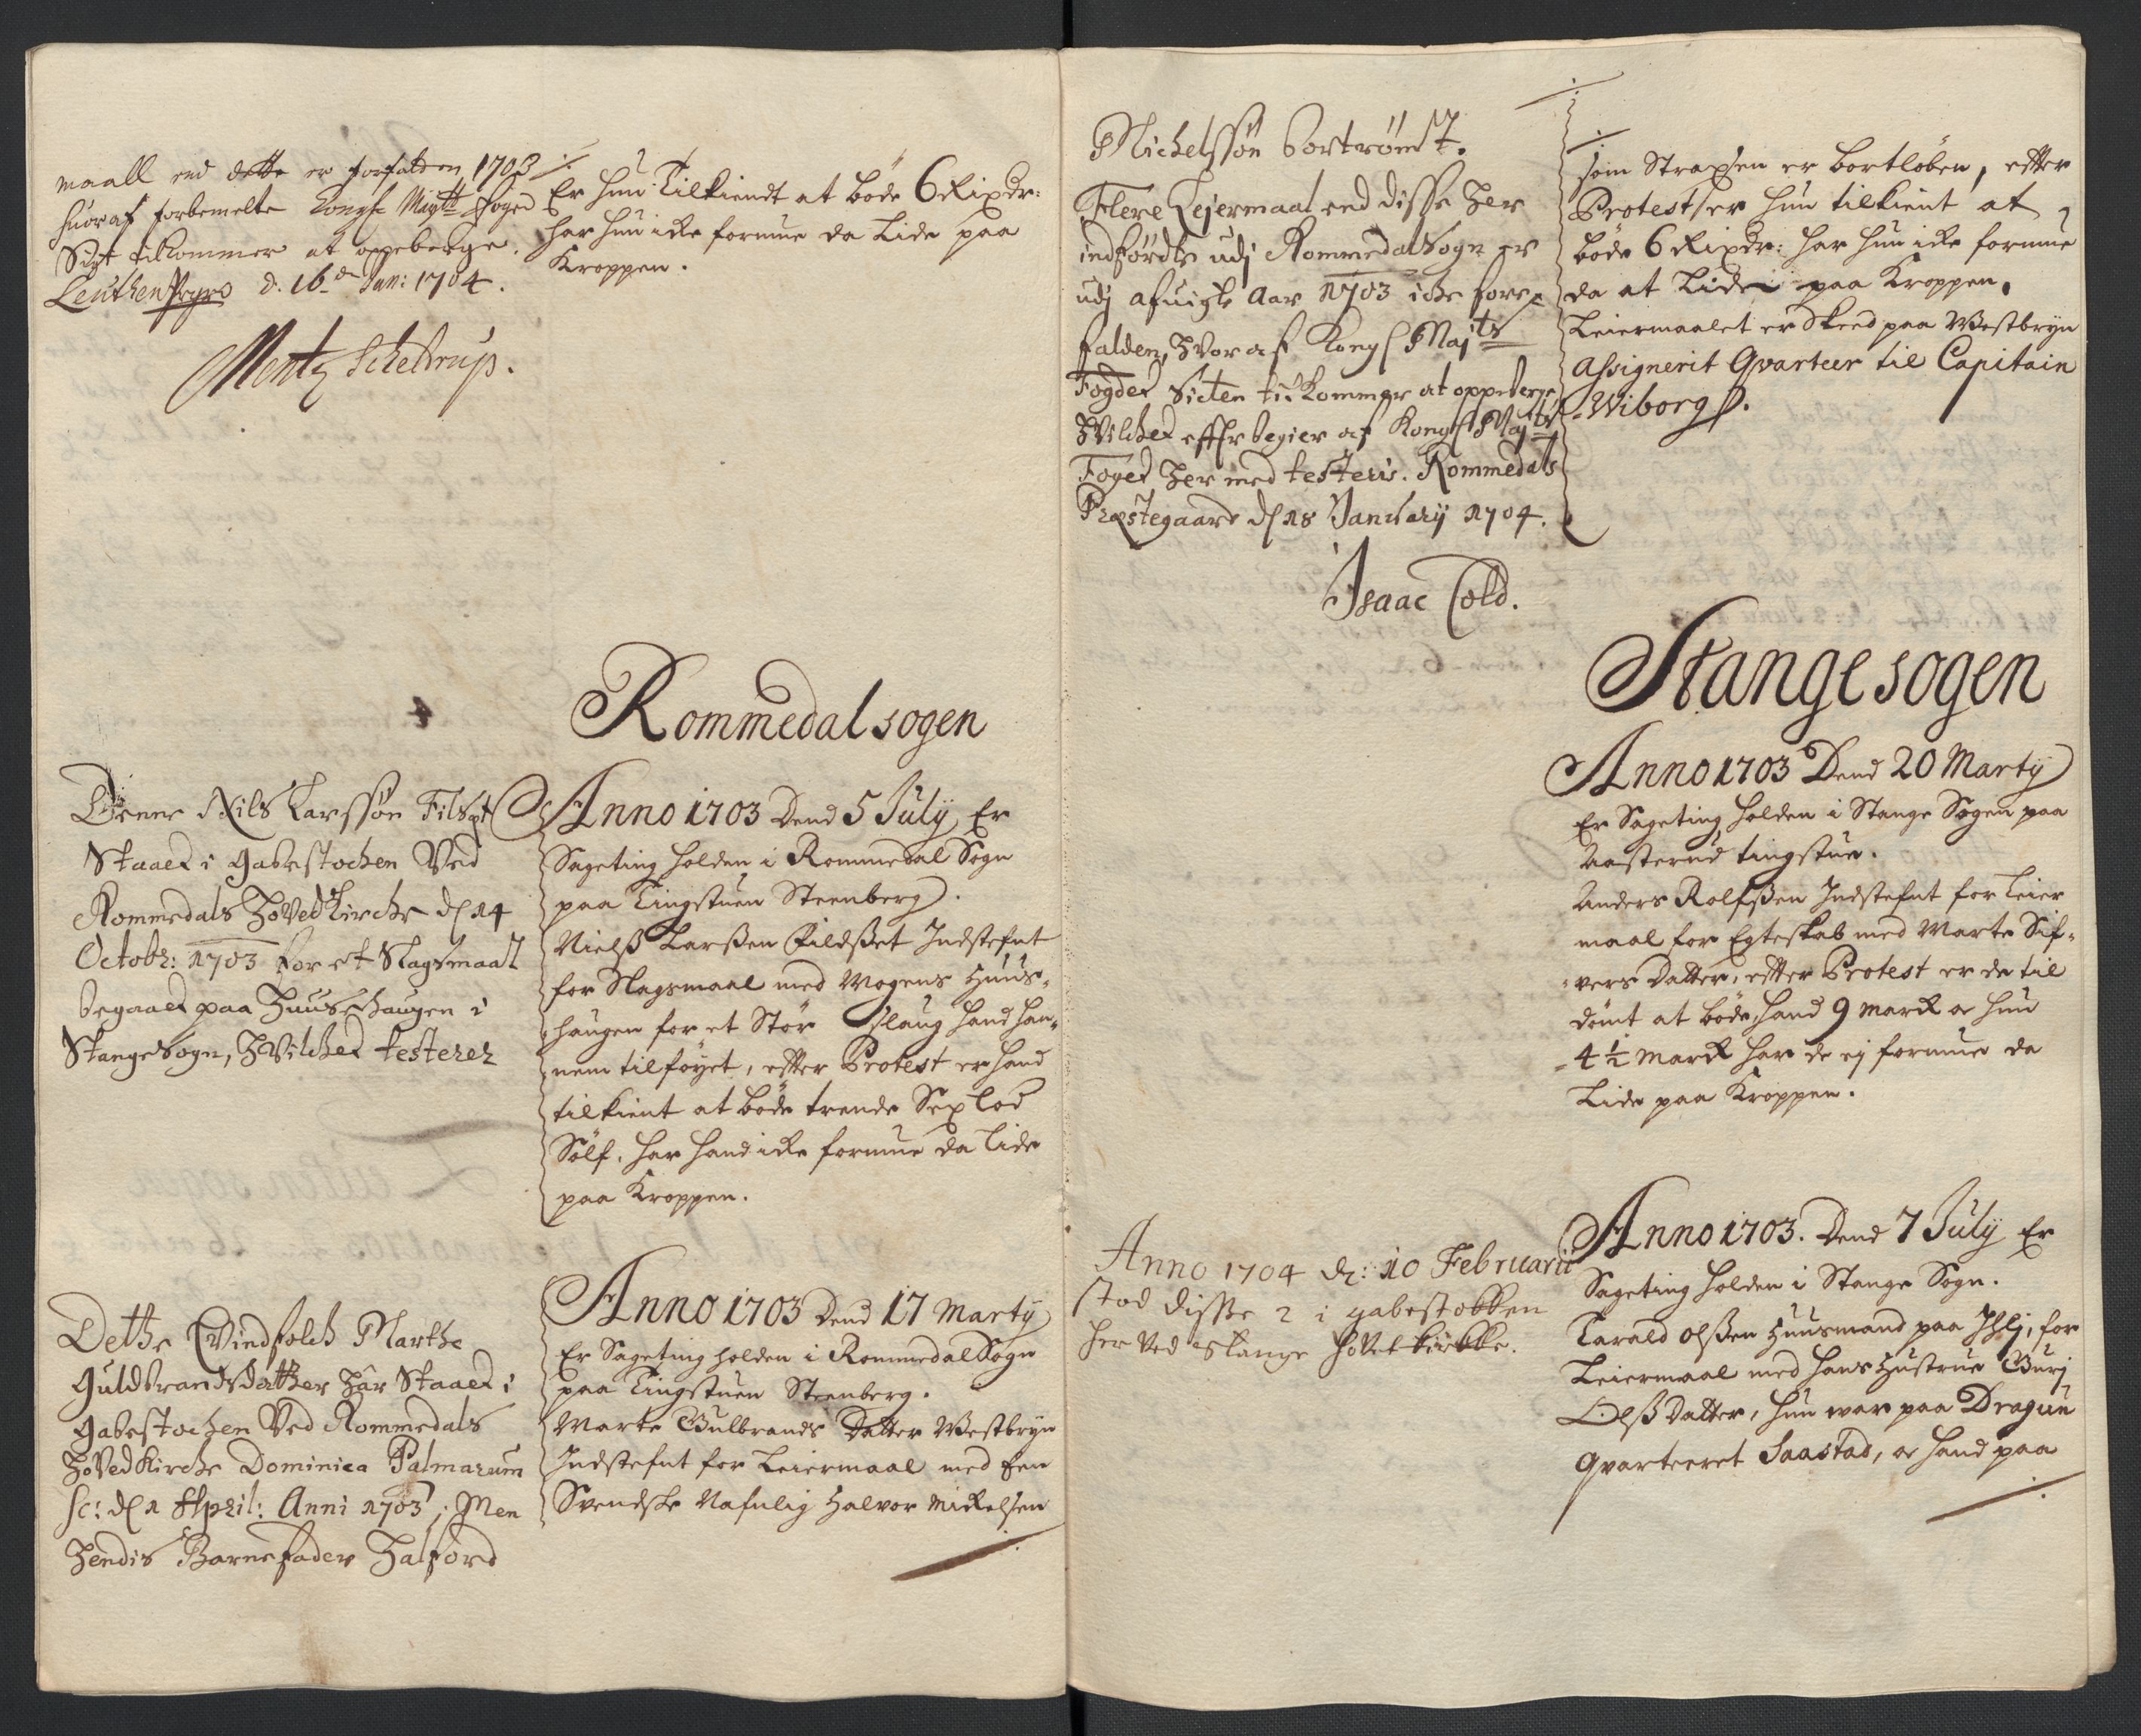 maall end dette er forfalden 1703
huoraf forbemelte Kongl Maytts foged
Sigt tilkommer at oppeberge.
Leuthen Prgrd d. 16de Jan: 1704.
Mentz Scheldrup.
Er hun Tilkiendt at bøde 6 Rixdr:
har hun icke formue da Lide paa
Kroppen.
Rommedal sogen
Denne Nils Larssøn Filset
Staaed i gabestochen Ved
Rommedals Hoved Kirche d 14
Octobr: 1703 for et Slagsmaal
begaaed paa Huusehaugen i
Stange Sogn, Hvilched testerer
Anno 1703 Dend 5 July Er
Sageting holden i Rommedal Sogn
paa Tingstuen Steenberg.
Nielß Larßen Fildßet Indstefnt
for Slagsmaal med Mogens Huus-
haugen for et Stør Slaug hand han-
nem tilføyet, efter Protest er hand
tilkient at bøde trende Sex lod
Sølf. har hand icke formue da lide
paa Kroppen.
Dethe Qvindfolch Marthe
Guldbrandsdatther har Staaed i
Gabestochen Ved Rommedals
HovedKirche Dominica Palmarum
sc: d 1 April: Anni 1703; Men
Hendis Barnefader Halford
Anno 1703 Dend 17 Marty
Er Sageting holden i Rommedal Sogn
paa Tingstuen Steenberg.
Marte Gulbrands Datter Westbryn
Indstefnt for Leiermaal med Een
Svendske Nafnlig Halvor Mickelsen
Michelssøn bortrømt.
Flere Lejermaal end disse her
indførdte udj Rommedal Sogn er
udj afvigte Aar 1703 iche fore-
falden, Hvoraf Kongl Majts
Fogded Sicten tilkommer at oppeberge
Hvilched effter begier af Kongl Majts
Foged her med testeris. Rommedals
Præstegaard d 18 January 1704.
Isaac Cold.
som Straxsen er bortløben, efter
Protest er hun tilkient at
bøde 6 Rixdr: har hun icke formue
da at Lide paa Kroppen.
Leiermaalet er Skeed paa Westbryn
Assignerit Qvarteer til Capitain
Wiborg.
Stange sogen
Anno 1703 Dend 20 Marty
Er Sageting holden i Stange Sogen paa
Aasterud tingstue.
Anders Rolfßen Indstefnt for Leier
maal for Egteskab med Marte Sif-
vers Datter, efter Protest er de til
dømt at bøde hand 9 Marck oc hun
4 ½ Marck har de ej formue da
Lide paa Kroppen.
Anno 1704 d: 10 Februarii
stod disse 2 i gabestokken
her ved Stange Hovet kirkke.
Anno 1703. Dend 7 July Er
Sageting holden i Stange Sogn.
Tarald Olßen Huusmand paa for
Leiermaal med hans Hustrue Gurj
Olß Datter, hun war paa Dragun
Qvarteeret Saastad, oc hand paa